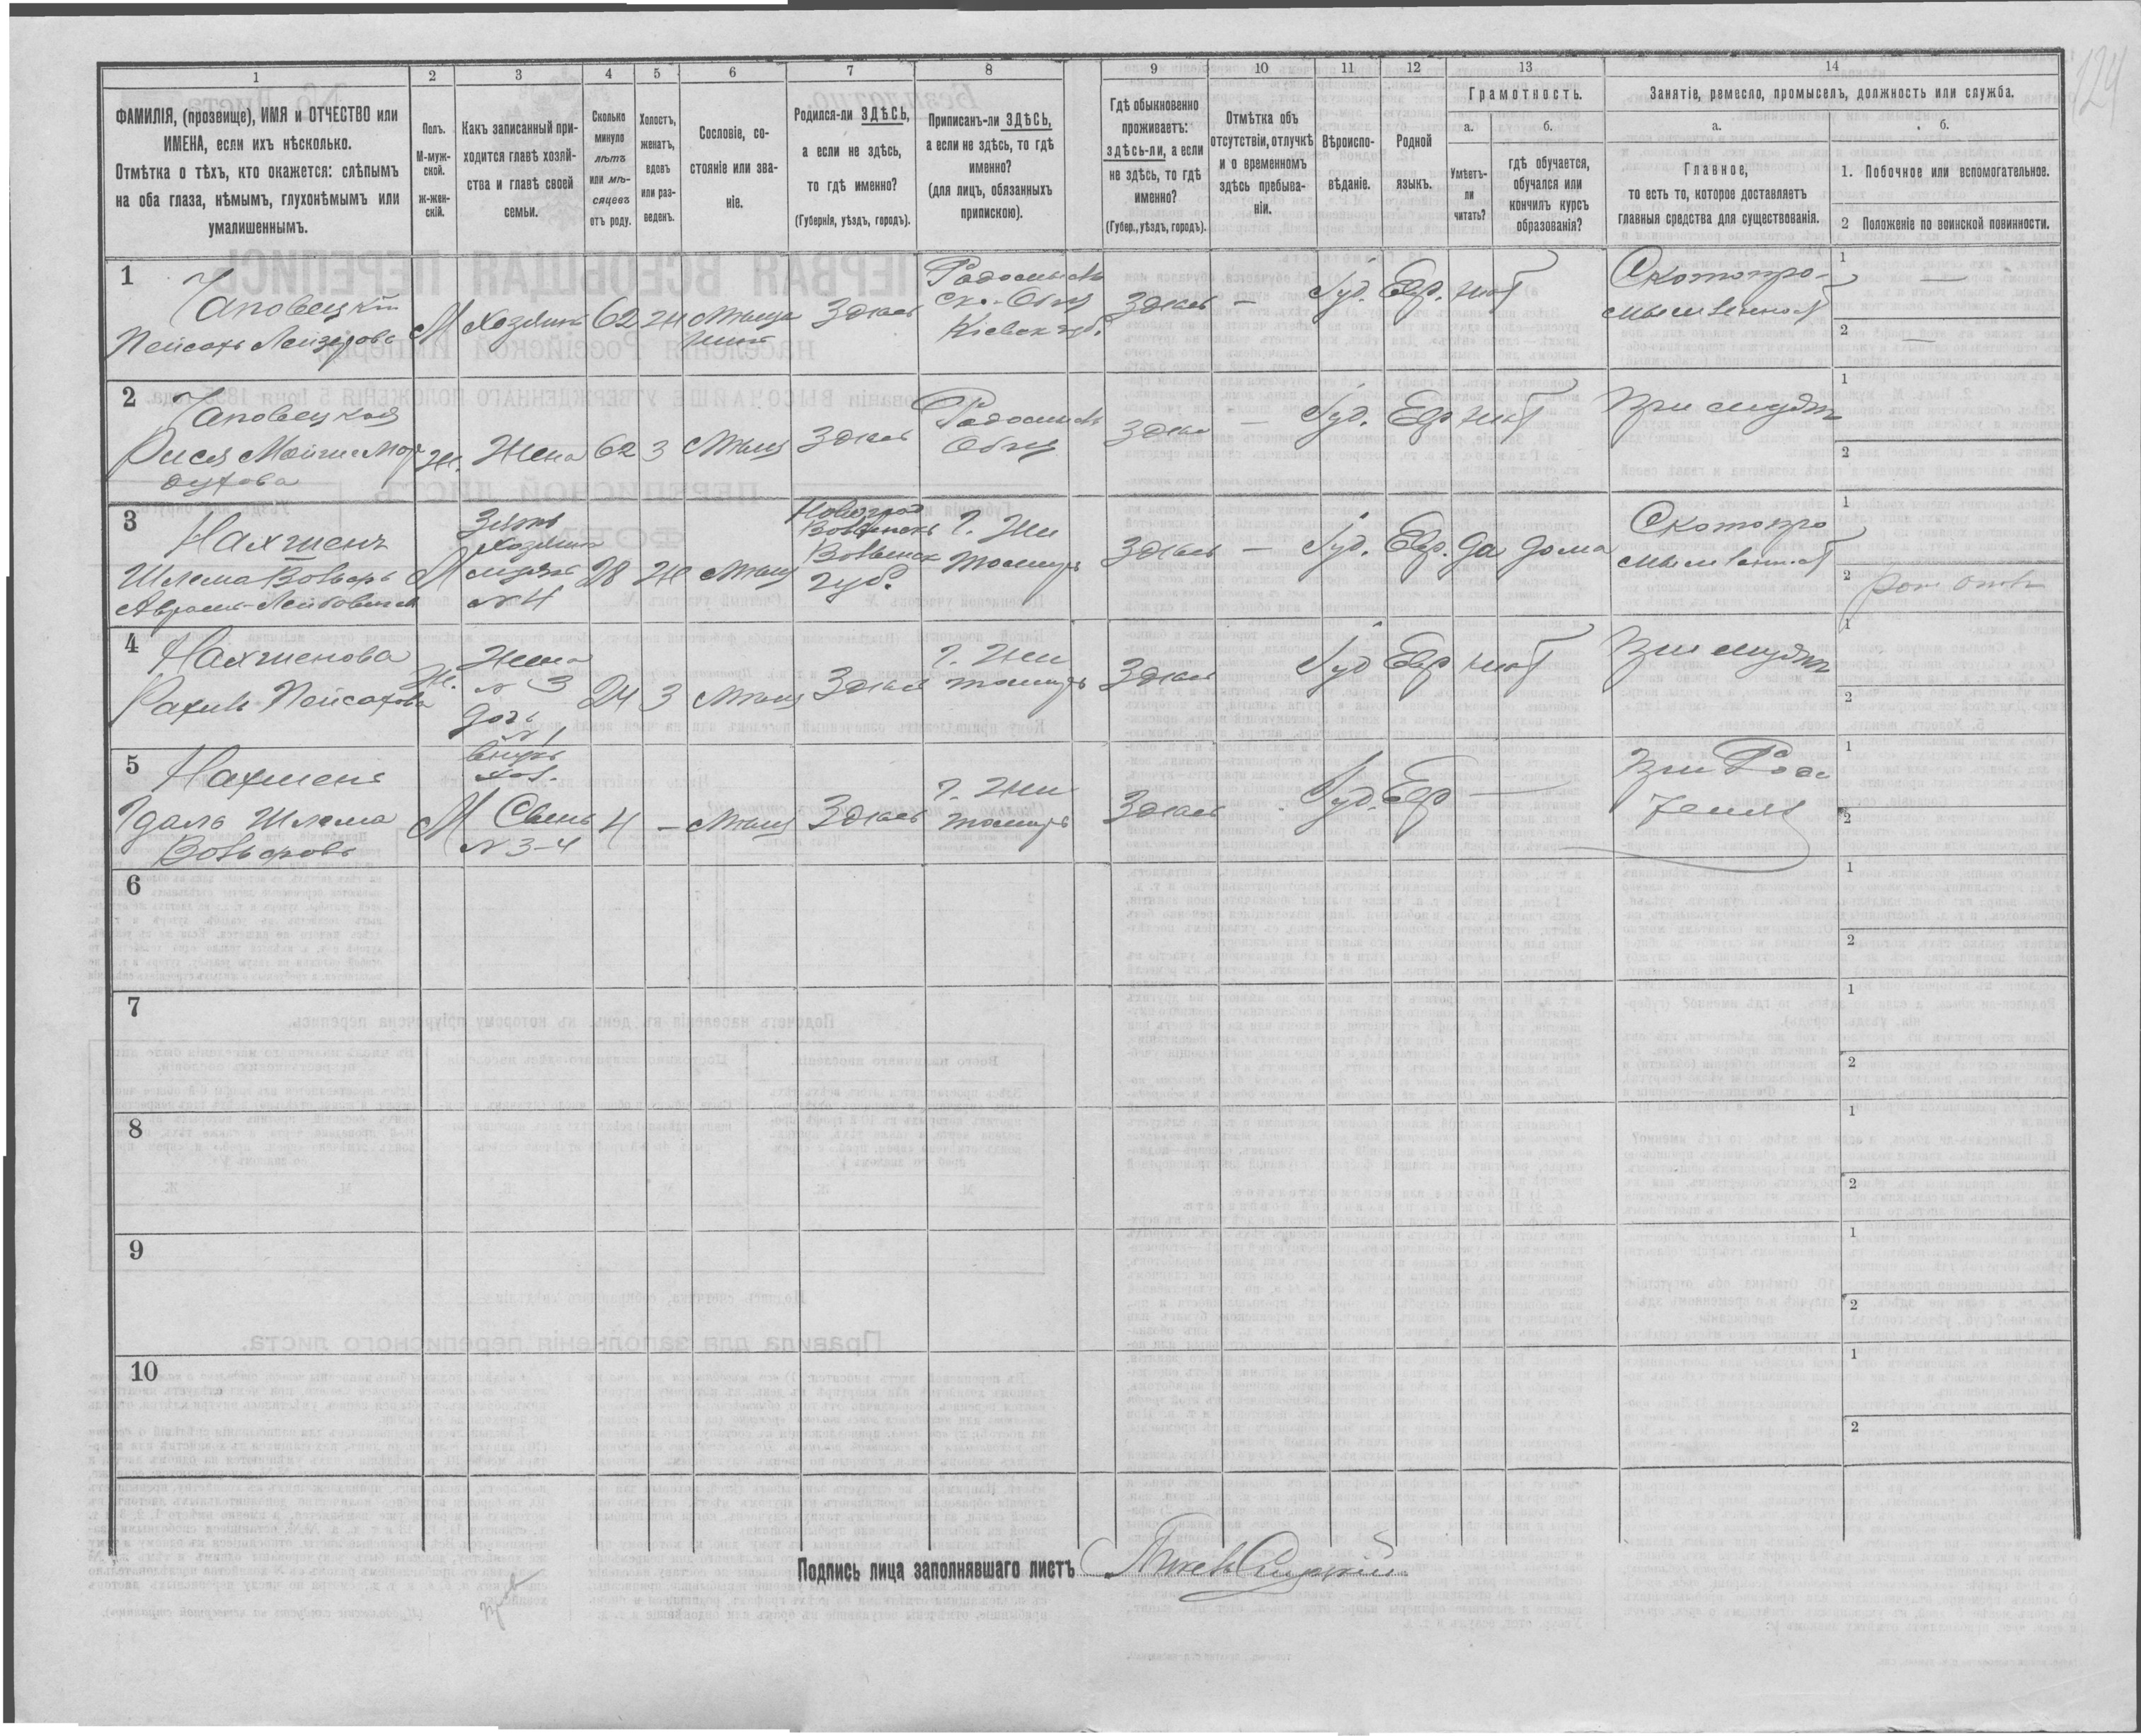 124
1 2 3 4 5 6 7 8 9 10 11 12 13 14
ФАМИЛІЯ, (прозвище), ИМЯ и ОТЧЕСТВО или
ИМЕНА, если ихъ нѣсколько.
Отмѣтка о тѣхъ, кто окажется: слѣпымъ
на оба глаза, нѣмымъ, глухонѣмымъ или
умалишеннымъ.
Полъ.
М-муж-
ской.
ж-жен-
скій.
Какъ записанный при-
ходится главѣ хозяй-
ства и главѣ своей
семьи.
Сколько
минуло
лѣтъ
или мѣ-
сяцевъ
отъ роду.
Холостъ,
женатъ,
вдовъ
или раз-
веденъ.
Сословіе, со-
стояніе или зва-
ніе.
Родился-ли ЗДѢСЬ,
а если не здѣсь,
то гдѣ именно?
(Губернія, уѣздъ, городъ).
Приписанъ-ли ЗДѢСЬ,
а если не здѣсь, то гдѣ
именно?
(для лицъ, обязанныхъ
припискою).
Гдѣ обыкновенно
проживаетъ:
здѣсь-ли, а если
не здѣсь, то гдѣ
именно?
(Губер., уѣздъ, городъ).
Отмѣтка объ
отсутствіи, отлучкѣ
и о временномъ
здѣсь пребыва-
ніи.
Вѣроиспо-
вѣданіе.
Родной
языкъ.
Грамотность.
а.
Умѣетъ-
ли
читать?
б.
гдѣ обучается,
обучался или
кончилъ курсъ
образованія?
Занятіе, ремесло, промыселъ, должность или служба.
а.
Главное,
то есть то, которое доставляетъ
главныя средства для существованія.
б.
1. Побочное или вспомогательное.
2 Положеніе по воинской повинности.
1
Чаповецкій
Пейсахъ Лейзеровъ
М Хозяинъ 62 Ж Мѣща
нинъ
Здѣсь
Радомысль
ск. Общ
Кіевск губ.
Здѣсь — Іуд. Евр. нѣт
Скотопро-
мышленност
1 —
2 —
2
Чаповецкая
Рися Мойше Мор
духова
Ж. Жена 62 З Мѣщ Здѣсь
Радомысль
Общ
Здѣсь — Іуд. Евр нѣт При мужѣ
1
2
3
Нахшенъ
Шлема Вольфъ
Авраам-Лейбович
М
Зять
Хозяина
мужъ
№ 4
28 Ж Мѣщ
Новоград
Волынскъ
Волынск
губ.
г. Жи
томиръ
Здѣсь — Іуд. Евр. да дома
Скотопро
мышленност
1
2
4
Нахшенова
Рахиль Пейсахова
Ж.
Жена
№ 3
дочь
№ 1
24 З Мѣщ Здѣсь
г. Жи
томиръ
Здѣсь Іуд Евр нѣт При мужѣ
1
2
5
Нахшенъ
Идаль Шлема
Вольфовъ
М
внукъ
хоз.
Сынъ
№ 3-4
4 — Мѣщ Здѣсь
г. Жи
томиръ
Здѣсь Іуд. Евр —
При Роди
теляхъ
1
2
6
1
2
7
1
2
8
1
2
9
1
2
10
1
2
Подпись лица заполнявшаго листъ